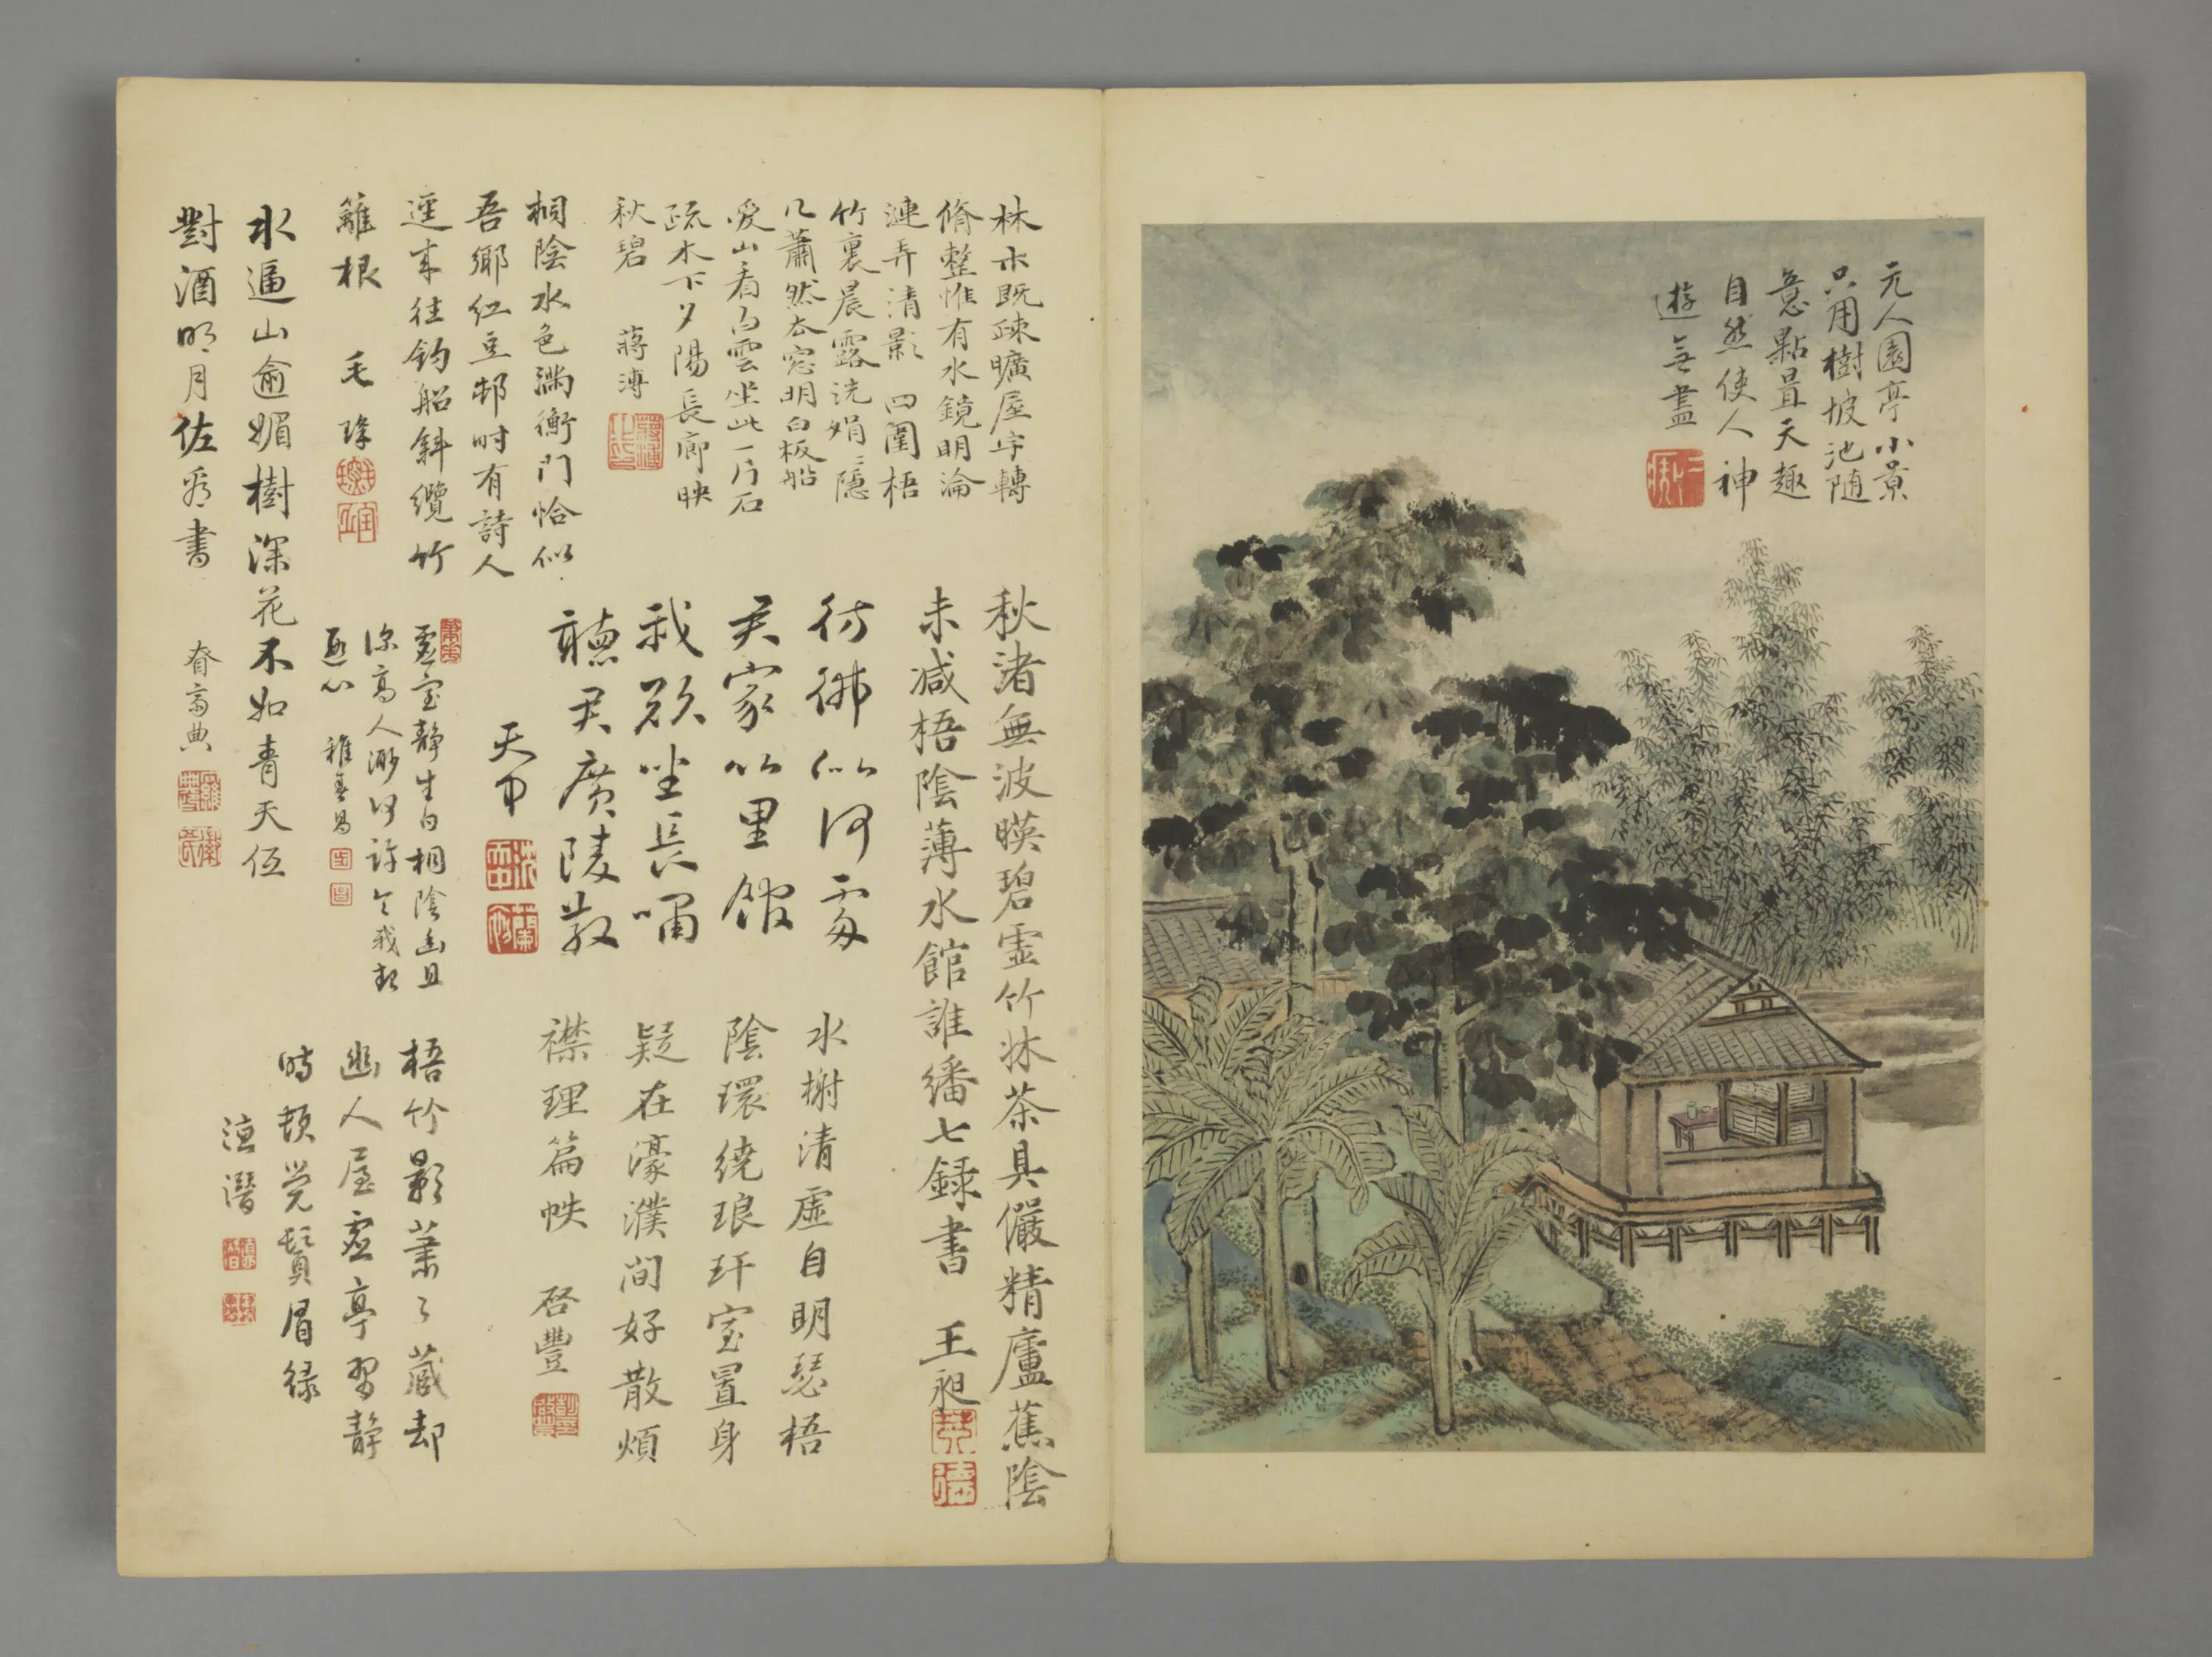 元人園亭小景
只用樹坡池随
意點置天趣
自然使人神
遊無盡
林木既疎曠屋宇轉
脩整惟有水鏡明淪
漣弄清影四圍梧
竹裏晨露洗娟娟隱
几蕭然太窓明白板船
愛山看白雲坐此一片石
疏木下夕陽長廊映
秋碧 蔣溥
桐陰水色滿衡門恰似
吾鄉紅豆邨时有詩人
逕来往釣船斜纜竹
籬根 毛琛
水逼山逾媚樹深花不如青天伍
對酒明月佐 書
秋渚無波暎碧虛竹牀茶具儼精廬蕉陰
未减梧陰薄水館誰繙七録書 王昶
彷彿似何處
君家竹里館
我欲坐長嘯
聽君廣陵散
天中
虛室静生白桐陰幽且
深高人渺何許令我
水榭清虚自明瑟梧
陰環繞琅玕室置身
疑在濠濮间好散煩
襟理篇帙 啓豐
梧竹影蕭々藏却
幽人屋虛亭習静
時頓觉鬢眉緑
德潛